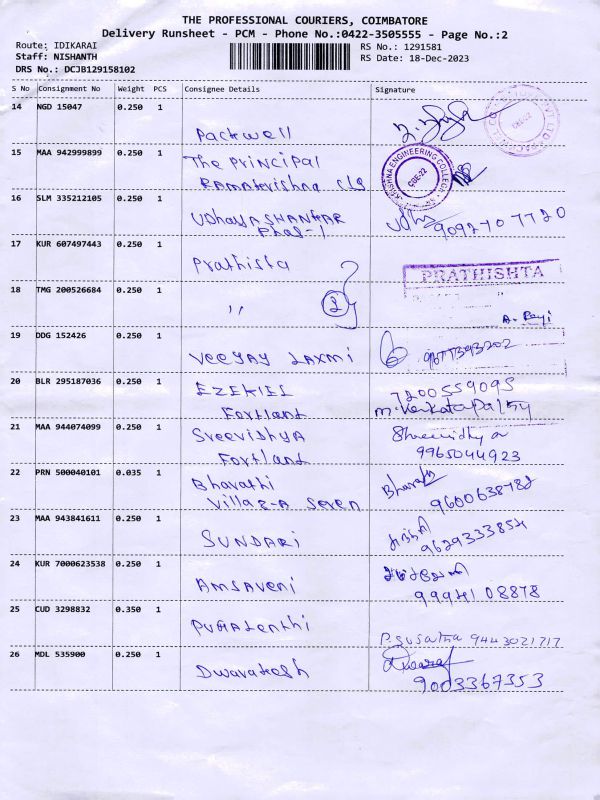 THE PROFESSIONAL COURIERS, COIMBATORE
Delivery Runsheet - PCM - Phone No.:0422-3505555 - Page No.:2
Route: IDIKARAI
RS No.: 1291581
Staff: NISHANTH
RS Date: 18-Dec-2023
DRS No.: DCJB129158102
S No Consignment No Weight PCS Consignee Details Signature
14 NGD 15047 0.250 1
Packwell
15 MAA 942999899 0.250 1
The Principal
Ramakrishna clg
KRISHNA ENGINEERING COLLEGE
CBE-22
16 SLM 335212105 0.250 1
UdhayaShankar
Phas-1
9092707720
17 KUR 607497443 0.250 1
Prathista
PRATHISHTA
18 TMG 200526684 0.250 1
,, 2
19 DDG 152426 0.250 1
Veejay Laxmi
9677393202
20 BLR 295187036 0.250 1
EZEKIEL
Fortland
7200559095
21 MAA 944074099 0.250 1
Sreevidhya
Fortland
9965044923
22 PRN 500040101 0.035 1
Bharathi
Villag-A Seven
Bharathi
23 MAA 943841611 0.250 1
SUNDARI
9629333854
24 KUR 7000623538 0.250 1
Amsaveni
9994108878
25 CUD 3298832 0.350 1
Pugalenthi
P. Susatha 9443021717
26 MDL 535900 0.250 1
Dwarakesh
9003367353